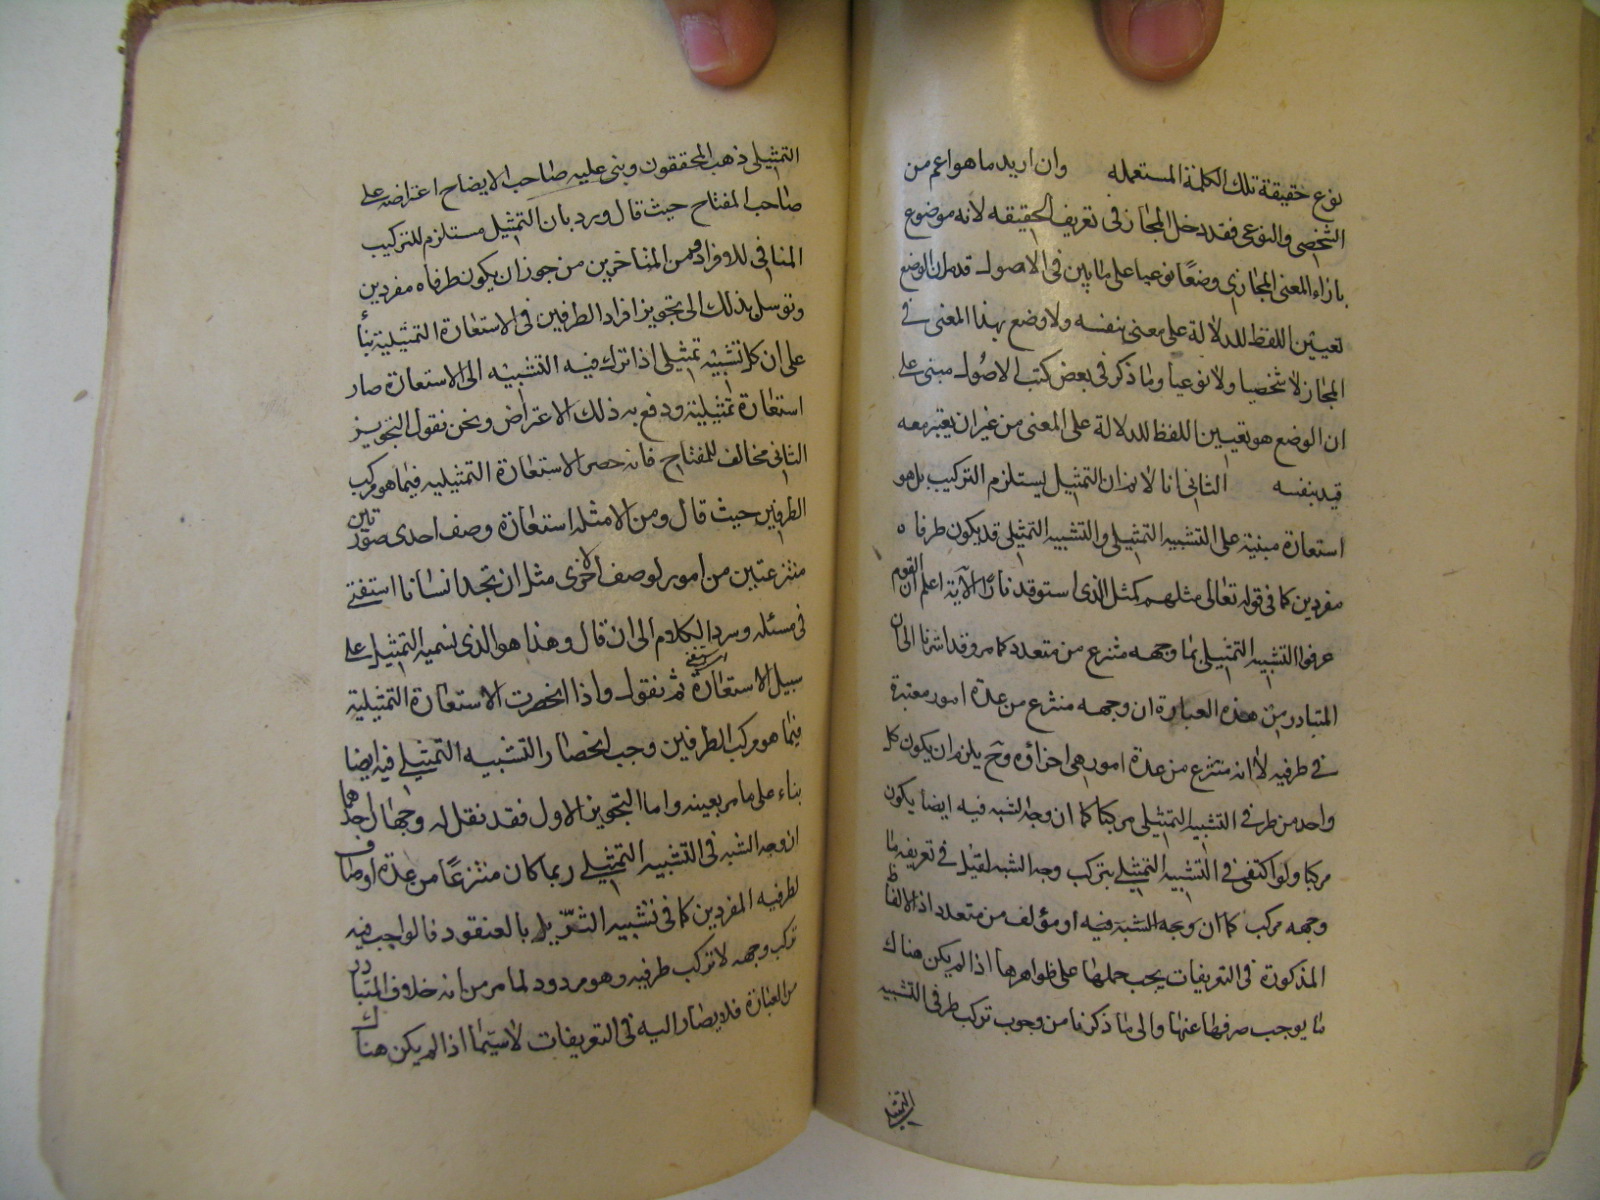 نوع حقيقة تلك الكلمة المستعمله وان اريد ما هو اعم من
الشخصى والنوعى فقد دخل المجاز فى تعريف الحقيقه لانه موضوع
بازاء المعنى المجازى وضعًا نوعيا على ما بين فى الاصول قد مر ان الوضع
تعيين اللفظ للدلالة على معنى بنفسه ولا وضع بهذا المعنى فى
المجاز لا شخصيا ولا نوعيا وما ذكر فى بعض كتب الاصول مبنى على
ان الوضع هو تعيين اللفظ للدلالة على المعنى من غير ان يعتبر معه
قيد بنفسه الثانى انا لانم ان التمثيل يستلزم التركيب بل هو
استعارة مبنية على التشبيه التمثيلى والتشبيه التمثيلى قد يكون طرفاه
مفردين كما فى قوله تعالى مثلهم كمثل الذى استوقد نارًا الآية اعلم ان القوم
عرفوا التشبيه التمثيلى بما وجهه منتزع من متعدد كما مر وقد اشرنا الى ان
المتبادر من هذه العبارة ان وجهه منتزع من عدة امور معتبرة
فى طرفيه لا انه منتزع من عدة امور هى اجزاؤه وح يلزم ان يكون كل
واحد من طرفى التشبيه التمثيلى مركبا كما ان وجه الشبه فيه ايضا يكون
مركبا ولو اكتفى فى التشبيه التمثيلى بتركب وجه الشبه لقيل فى تعريفه ما
وجهه مركب كما ان وجه الشبه فيه او مؤلف من متعدد اذ الالفاظ
المذكورة فى التعريفات يجب حملها على ظواهرها اذا لم يكن هناك
ما يوجب صرفها عنها والى ما ذكرنا من وجوب تركب طرفى التشبيه
التمثيلى
التمثيلى ذهب المحققون وبنى عليه صاحب الايضاح اعتراضه على
صاحب المفتاح حيث قال ورد بان التمثيل مستلزم للتركيب
المنافى للافراد ومن المتاخرين من جوز ان يكون طرفاه مفردين
وتوسل بذلك الى تجويز افراد الطرفين فى الاستعارة التمثيلية بناء
على ان كل تشبيه تمثيلى اذا ترك فيه التشبيه الى الاستعارة صار
استعارة تمثيلية ودفع به ذلك الاعتراض ونحن نقول التجويز
الثانى مخالف للمفتاح فانه حصر الاستعارة التمثيليه فيما هو مركب
الطرفين حيث قال ومن الامثله استعارة وصف احدى صورتين
منتزعتين من امور لوصف الاخرى مثل ان تجد انسانا استفتى
فى مسئله وسرد الكلام الى ان قال وهذا هو الذى نسميه التمثيل على
سبيل الاستعارة ثم نقول واذا انحصرت الاستعارة التمثيلية
فيما هو مركب الطرفين وجب انحصار التشبيه التمثيلى فيه ايضا
بناء على ما مر بعينه واما التجويز الاول فقد نقل له وجهان احدهما
ان وجه الشبه فى التشبيه التمثيلى ربما كان منتزعًا من عدة اوصاف
لطرفيه المفردين كما فى تشبيه الثريا بالعنقود فالواجب فيه
تركب وجهه لا تركب طرفيه وهو مردود لما مر من انه خلاف المتبادر
من العبارة فلا يصار اليه فى التعريفات لا سيما اذا لم يكن هناك